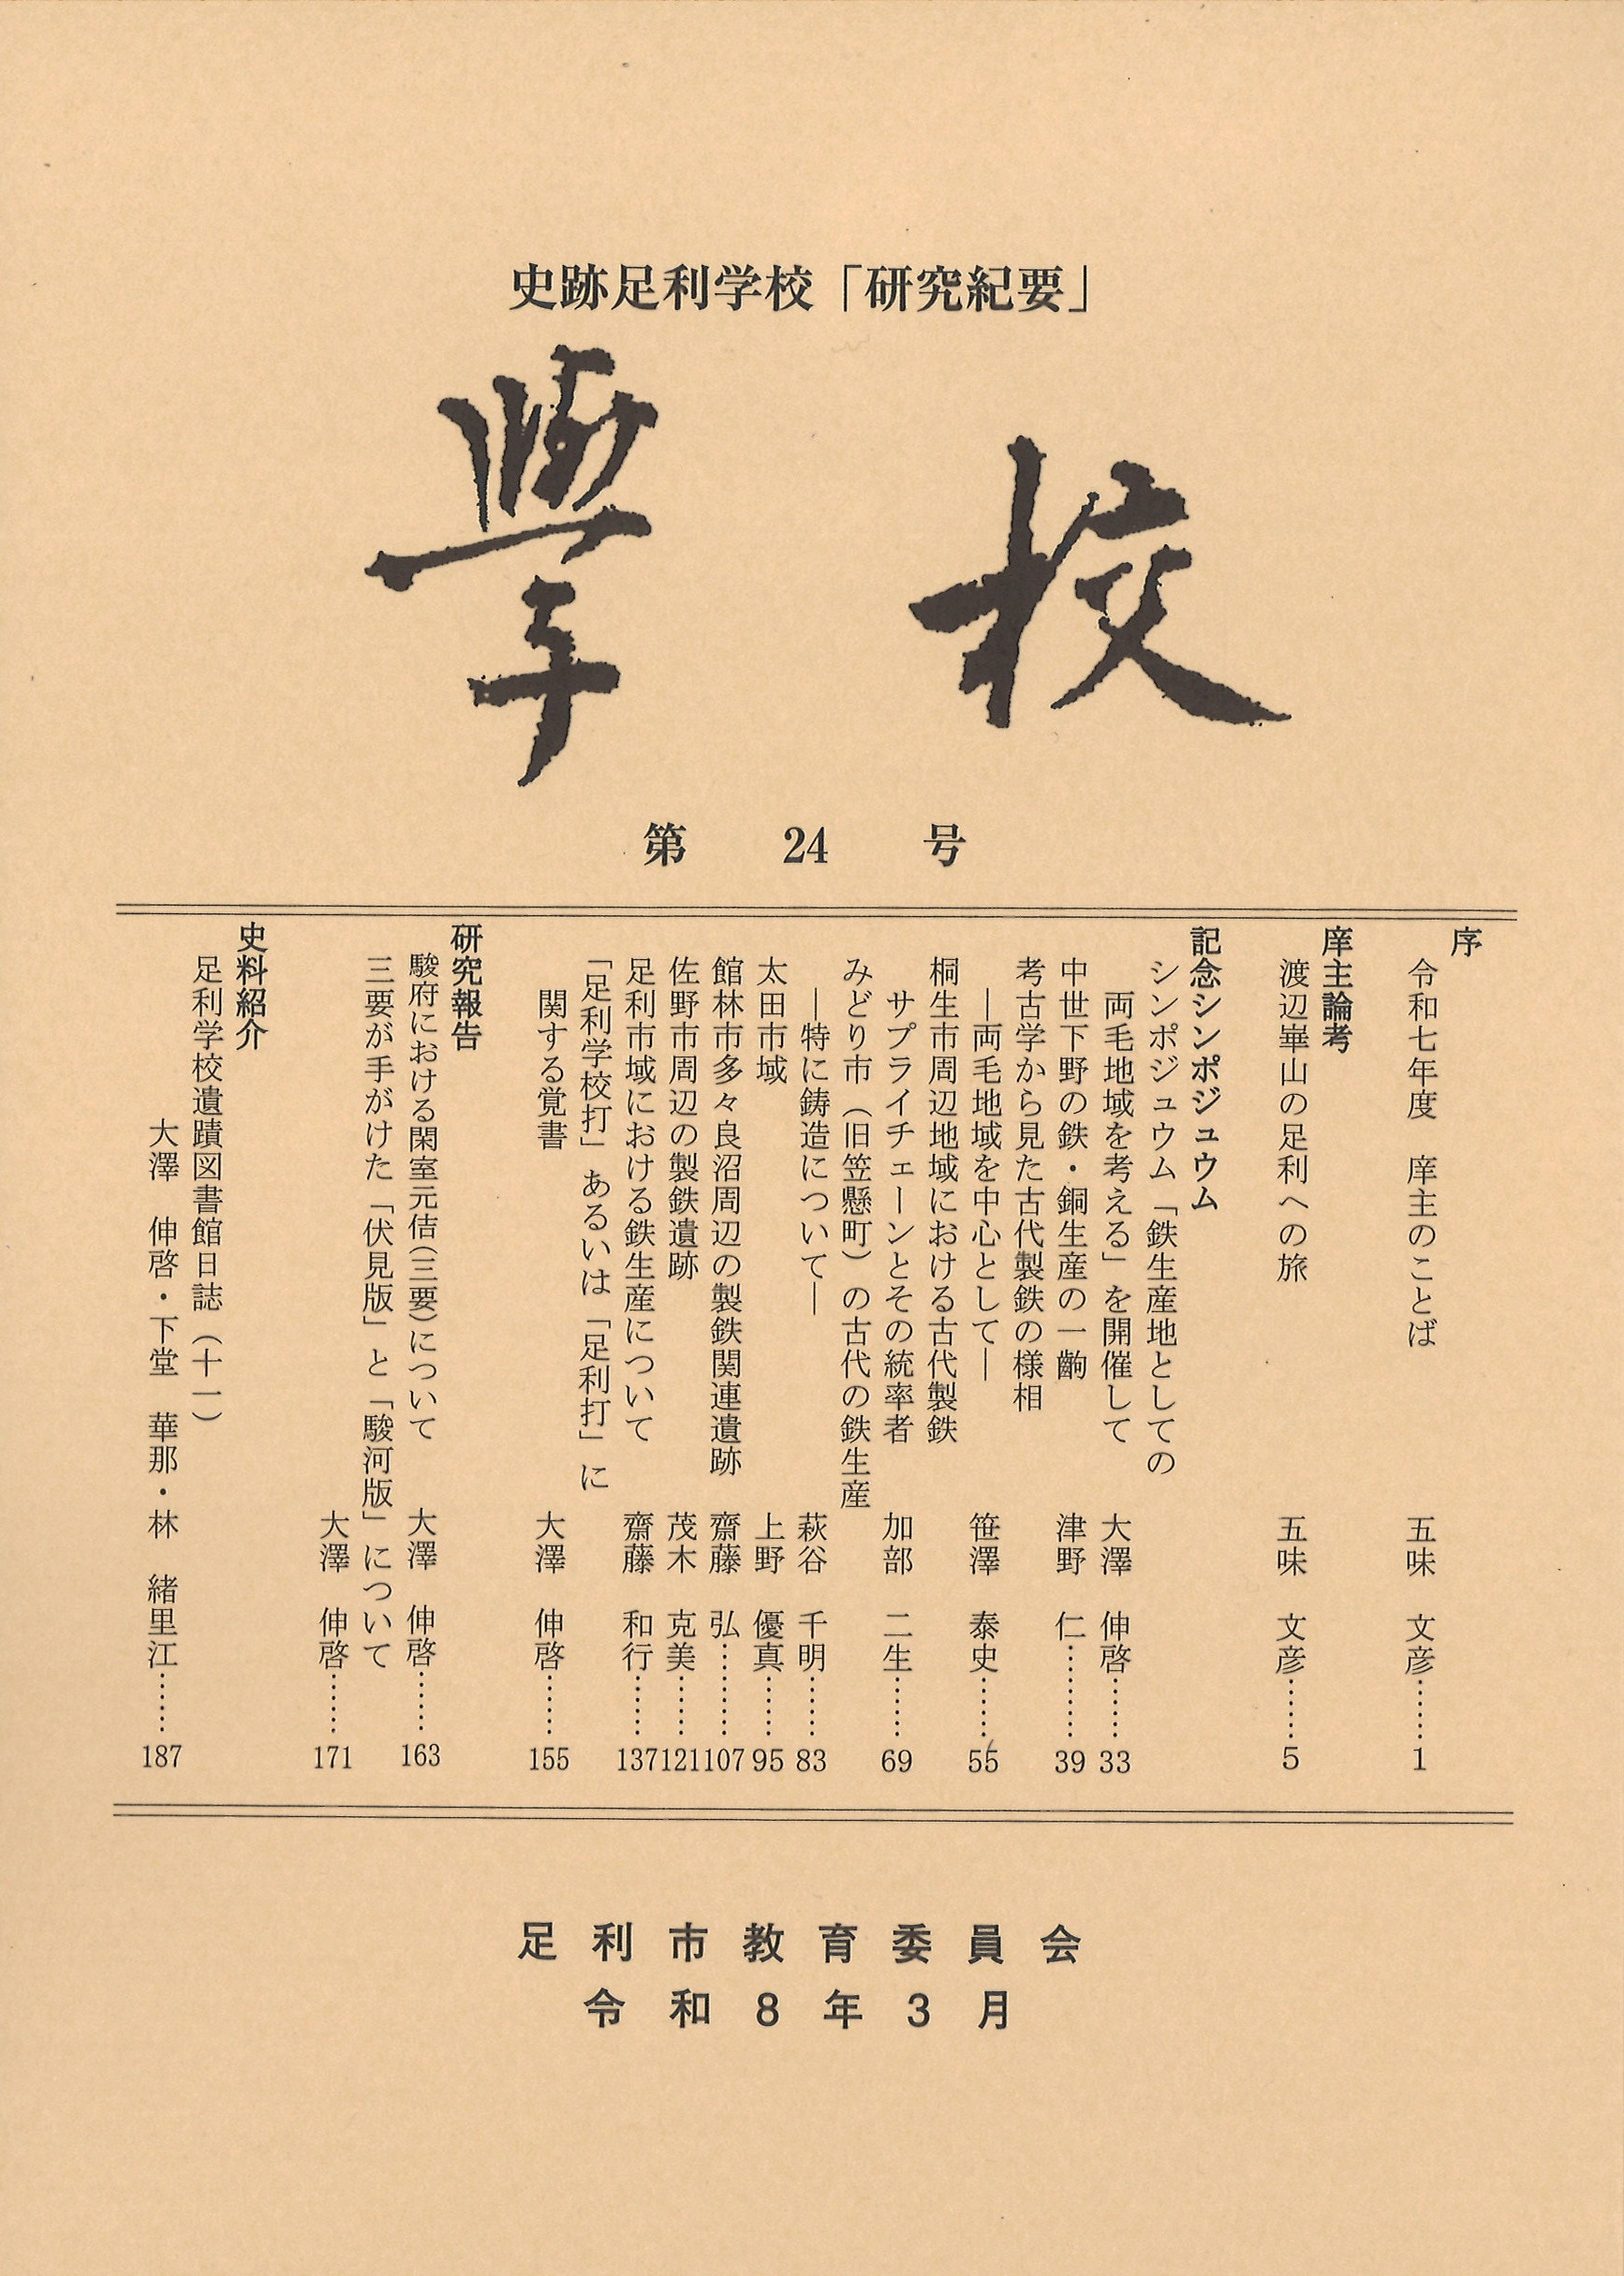 史跡足利学校「研究紀要」
學校
第 24 号
序
令和七年度 庠主のことば 五味 文彦……1
庠主論考
渡辺崋山の足利への旅 五味 文彦……5
記念シンポジュウム
シンポジュウム「鉄生産地としての
両毛地域を考える」を開催して 大澤 伸啓……33
中世下野の鉄・銅生産の一齣 津野 仁………39
考古学から見た古代製鉄の様相
―両毛地域を中心として― 笹澤 泰史……55
桐生市周辺地域における古代製鉄
サプライチェーンとその統率者 加部 二生……69
みどり市（旧笠懸町）の古代の鉄生産
―特に鋳造について― 萩谷 千明……83
太田市域 上野 優真……95
館林市多々良沼周辺の製鉄関連遺跡 齋藤 弘………107
佐野市周辺の製鉄遺跡 茂木 克美……121
足利市域における鉄生産について 齋藤 和行……137
「足利学校打」あるいは「足利打」に
関する覚書 大澤 伸啓……155
研究報告
駿府における閑室元佶(三要)について 大澤 伸啓……163
三要が手がけた「伏見版」と「駿河版」について
大澤 伸啓……171
史料紹介
足利学校遺蹟図書館日誌（十一）
大澤 伸啓・下堂 華那・林 緒里江……187
足利市教育委員会
令和8年3月